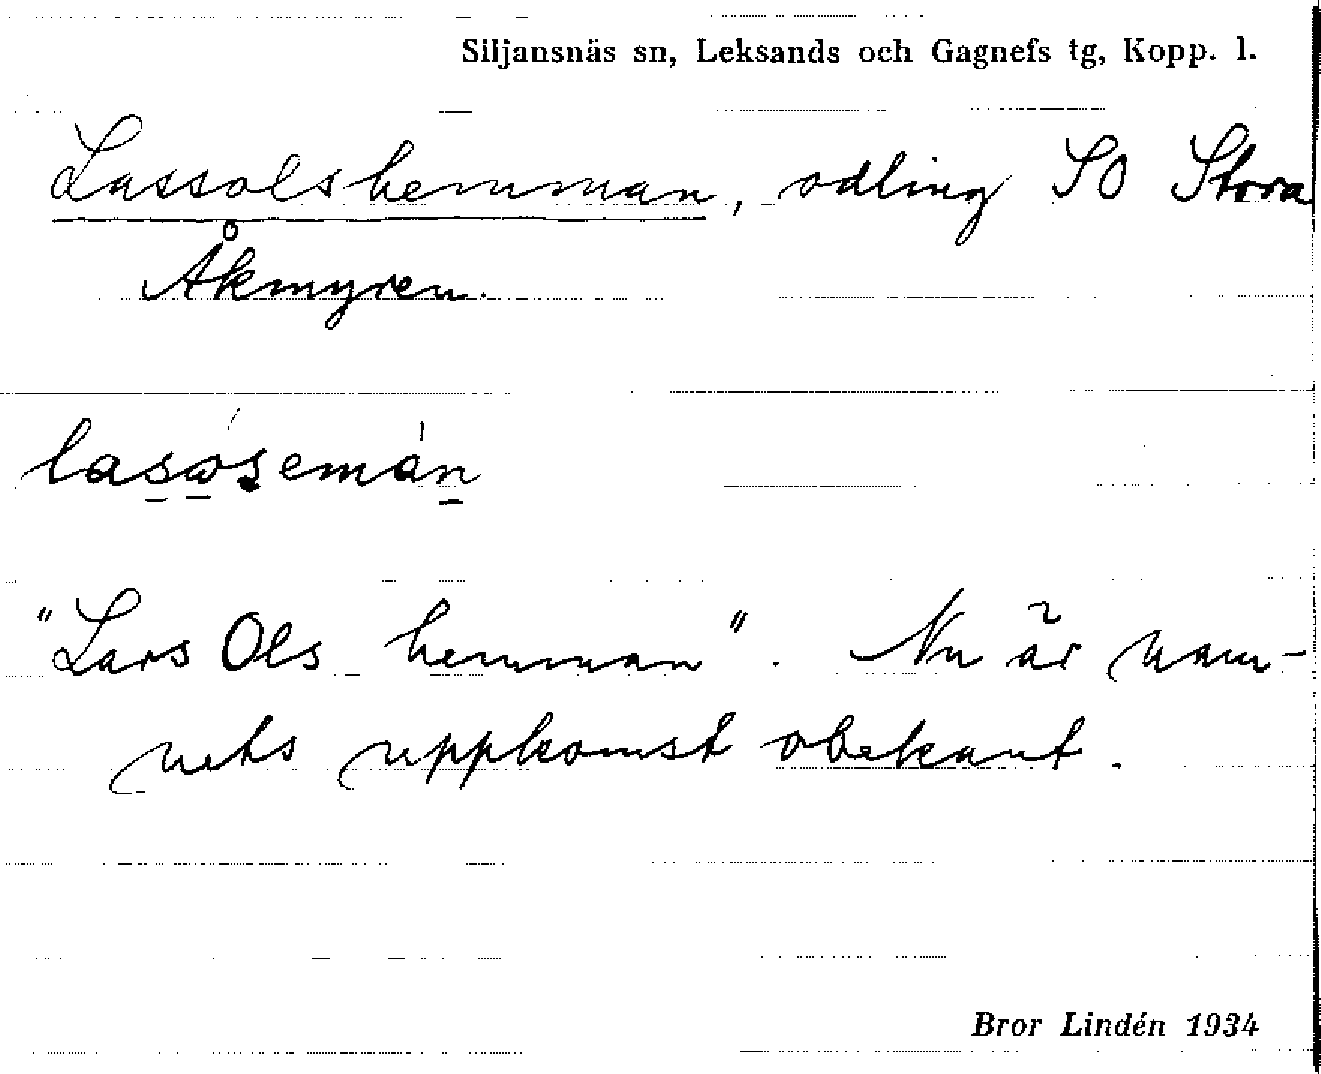 Siljansnäs sn, Leksands och Gagnefs tg, Kopp. l.
Lassolshemman, odling SO Stora
Åkmyren.
"Lars Ols hemman". Nu är nam-
nets uppkomst obekant.
Bror Lindén 1934